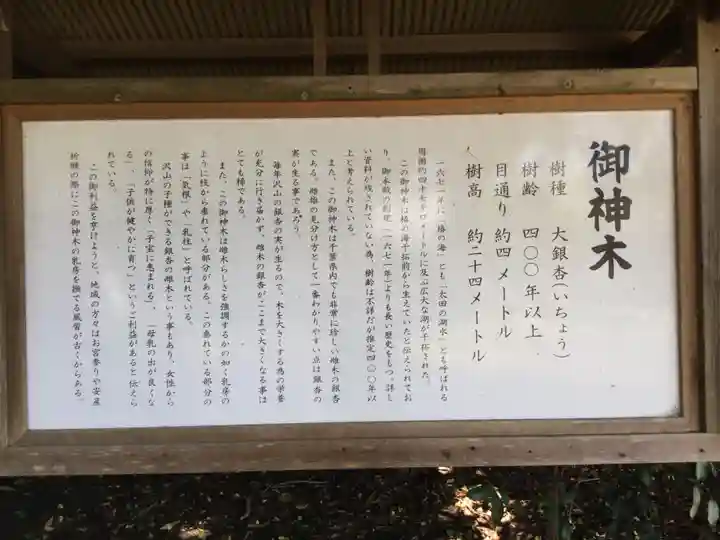 御神木
樹種 大銀杏(いちょう)
樹齢 四〇〇年以上
目通り 約四メートル
樹高 約二十四メートル
一六七一年に「椿の海」とも「太田の湖水」とも呼ばれる
周囲約四十キロメートルに及ぶ広大な湖が干拓された。
この御神木は椿の海干拓前から生えていたと伝えられてお
り、御本殿の創建(一六七一年)よりも長い歴史をもつ。詳し
い資料が残されていない為、樹齢は不詳だが推定四〇〇年以
上と考えられている。
また、この御神木は千葉県内でも非常に珍しい雌木の銀杏
である。雌雄の見分け方として一番わかりやすい点は銀杏の
実が生る事であろう。
毎年沢山の銀杏の実が生るので、木を大きくする為の栄養
が充分に行き届かず、雌木の銀杏がここまで大きくなる事は
とても稀である。
また、この御神木は雌木らしさを強調するかの如く乳房の
ように枝から垂れている部分がある。この垂れている部分の
事は「気根」や「乳柱」と呼ばれている。
沢山の子種ができる銀杏の雌木という事もあり、女性から
の信仰が特に厚く「子宝に恵まれる」、「母乳の出が良くな
る」、「子供が健やかに育つ」というご利益があると伝えら
れている。
この御利益を享けようと、地域の方々はお宮参りや安産
祈願の際にこの御神木の乳房を撫でる風習が古くからある。